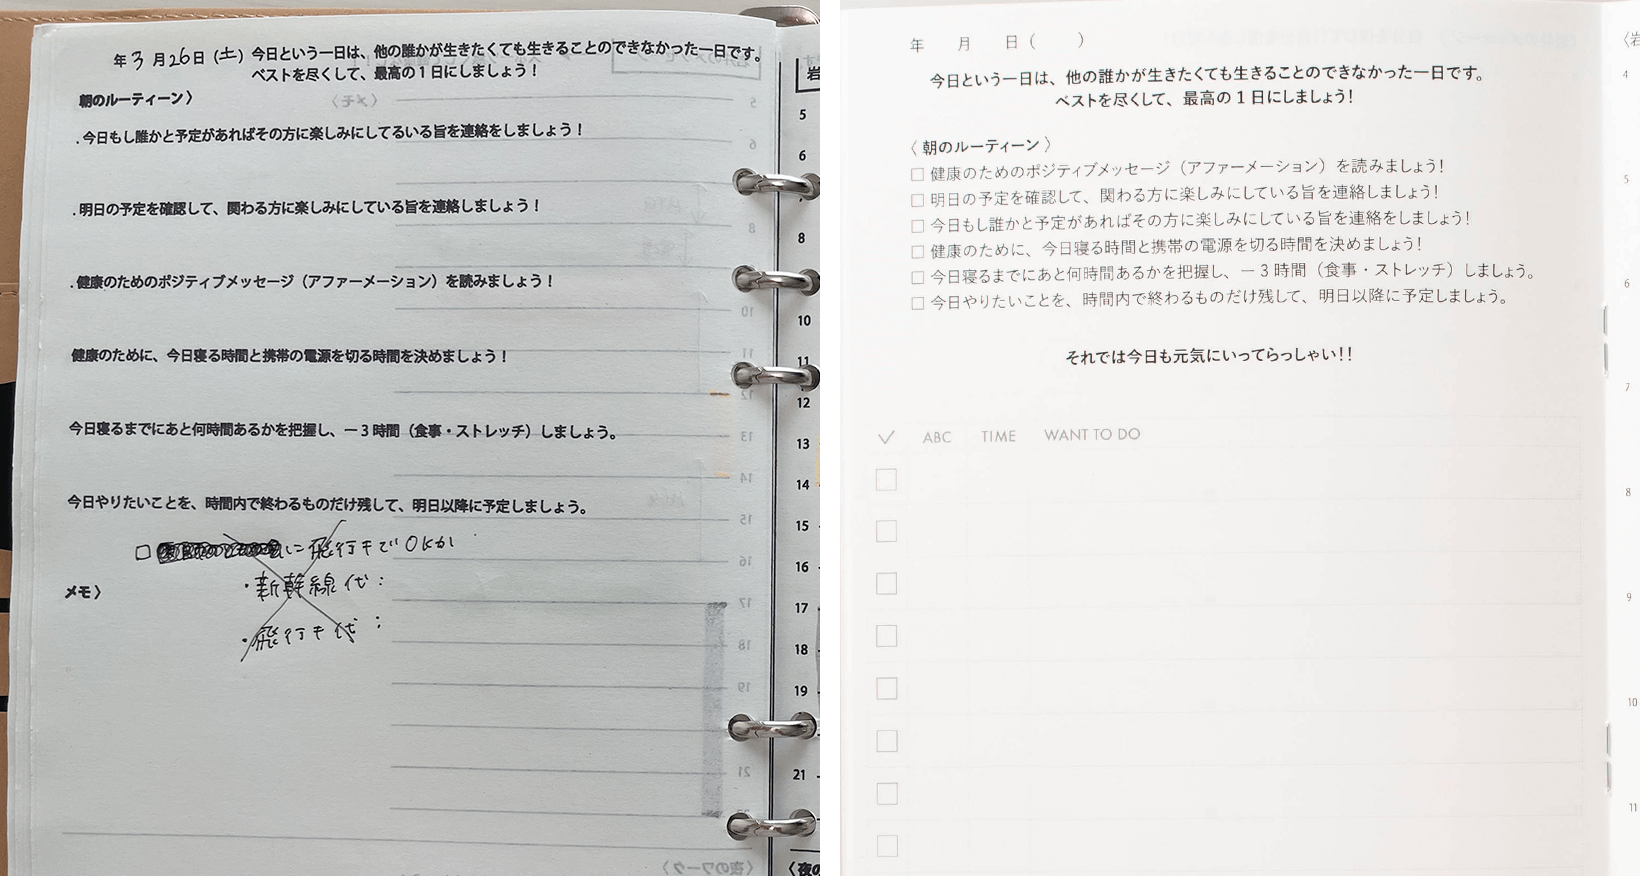 年3月26日(土) 今日という一日は、他の誰かが生きたくても生きることのできなかった一日です。
ベストを尽くして、最高の1日にしましょう！
朝のルーティーン〉
.今日もし誰かと予定があればその方に楽しみにしてるいる旨を連絡をしましょう！
.明日の予定を確認して、関わる方に楽しみにしている旨を連絡しましょう！
.健康のためのポジティブメッセージ（アファーメーション）を読みましょう！
健康のために、今日寝る時間と携帯の電源を切る時間を決めましょう！
今日寝るまでにあと何時間あるかを把握し、－3時間（食事・ストレッチ）しましょう。
今日やりたいことを、時間内で終わるものだけ残して、明日以降に予定しましょう。
に飛行キでOKか
・新幹線代：
メモ〉
・飛行キ代：
〈夜のワーク〉
岩
5
6
8
10
11
12
13
14
15
16
17
18
19
21
〈夜の
年 月 日（ ）
今日という一日は、他の誰かが生きたくても生きることのできなかった一日です。
ベストを尽くして、最高の1日にしましょう！
〈朝のルーティーン〉
□ 健康のためのポジティブメッセージ（アファーメーション）を読みましょう！
□ 明日の予定を確認して、関わる方に楽しみにしている旨を連絡しましょう！
□ 今日もし誰かと予定があればその方に楽しみにしている旨を連絡をしましょう！
□ 健康のために、今日寝る時間と携帯の電源を切る時間を決めましょう！
□ 今日寝るまでにあと何時間あるかを把握し、－3時間（食事・ストレッチ）しましょう。
□ 今日やりたいことを、時間内で終わるものだけ残して、明日以降に予定しましょう。
それでは今日も元気にいってらっしゃい！！
✓ ABC TIME WANT TO DO
〈岩
4
5
6
7
8
9
10
11